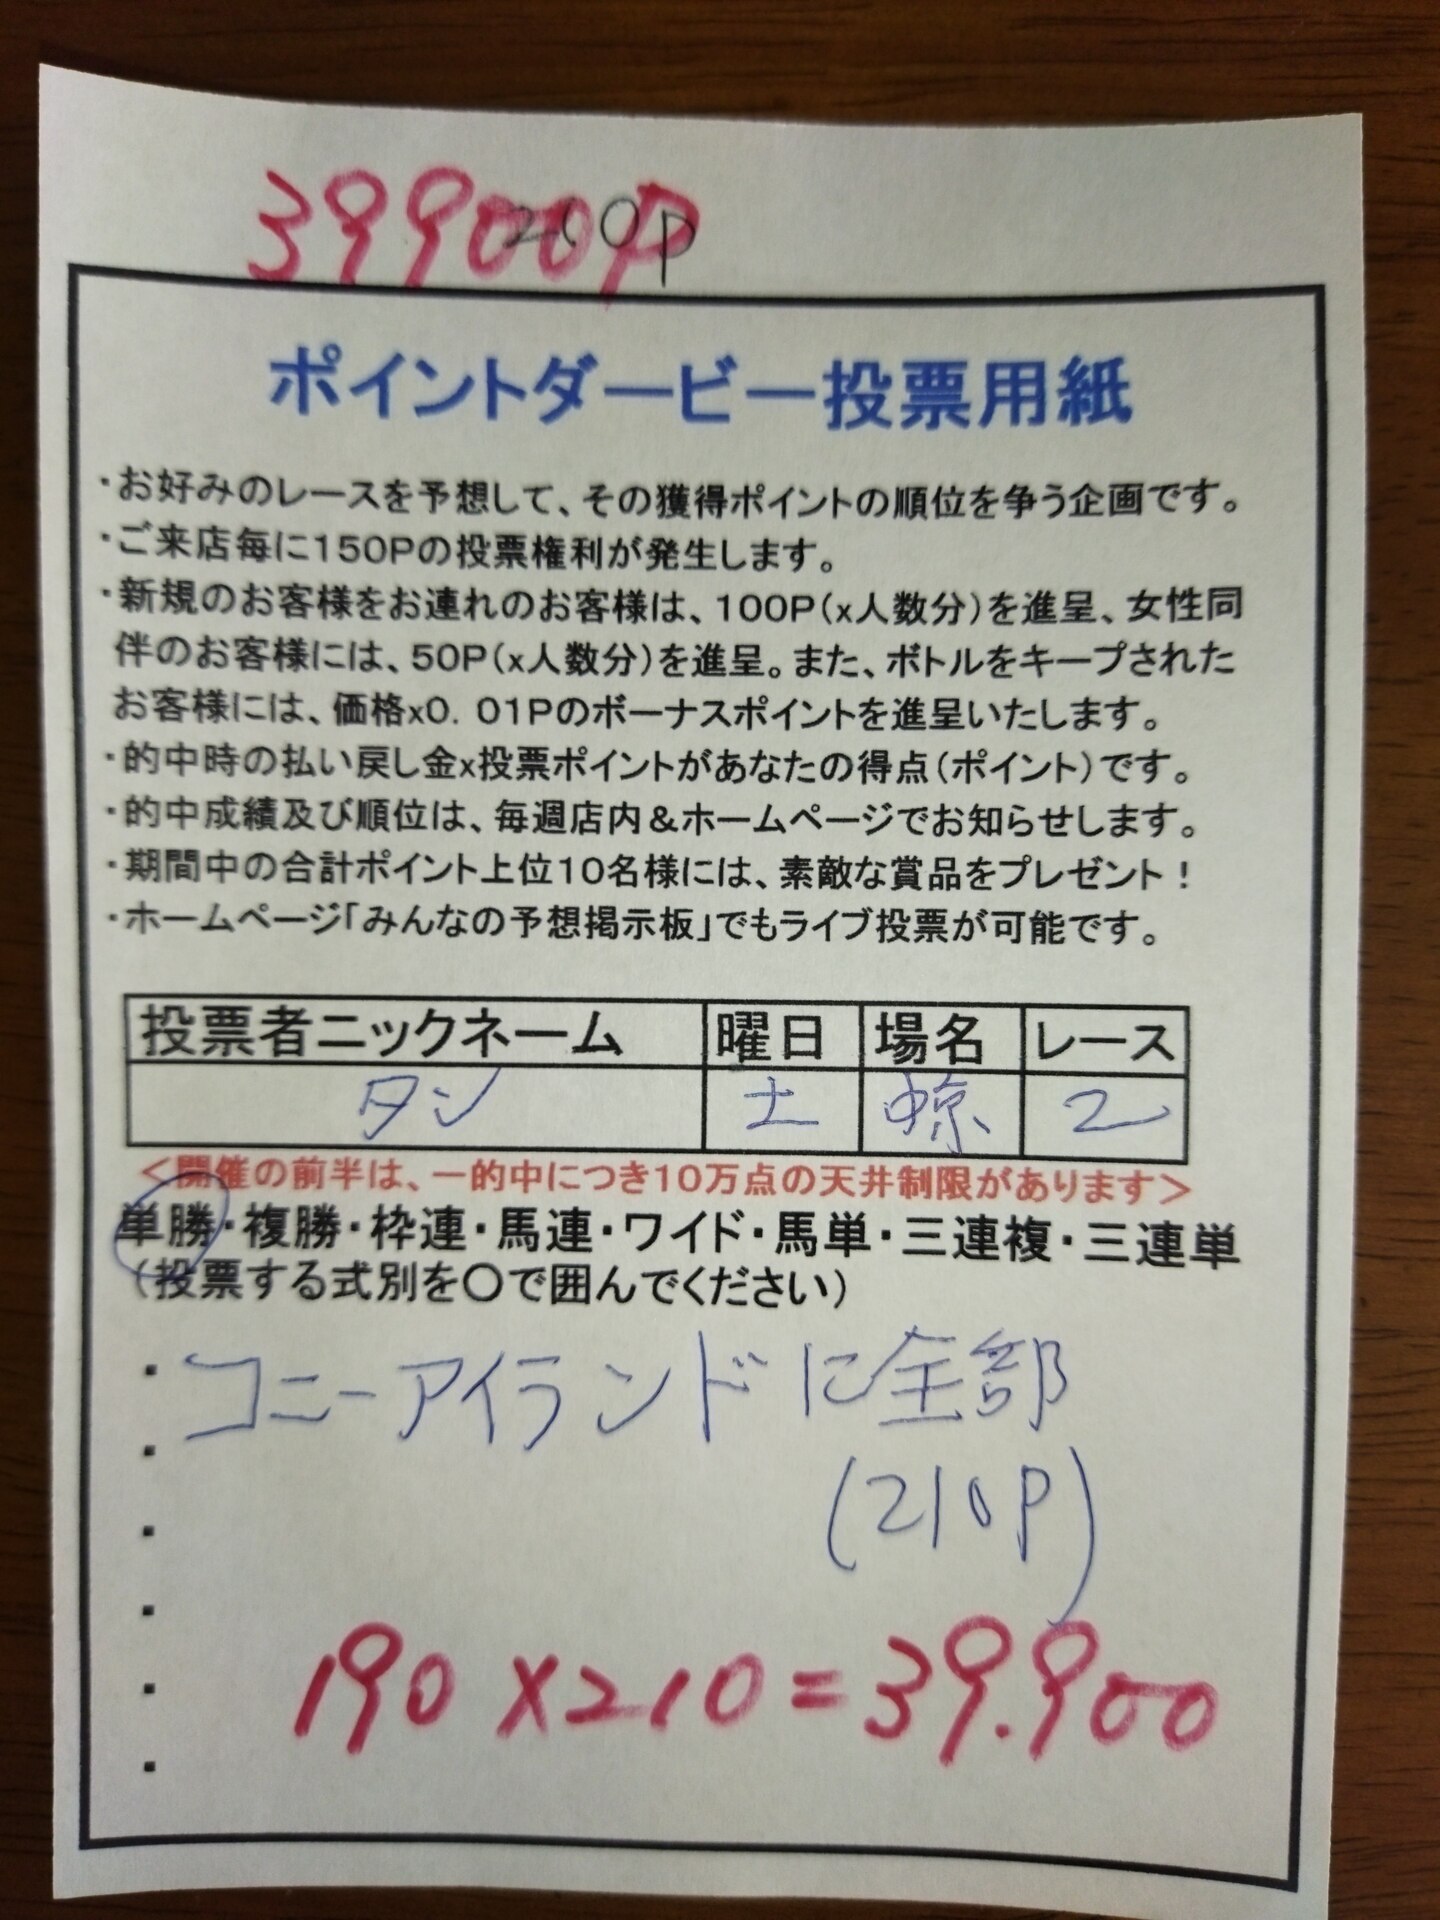 39900P
210P
ポイントダービー投票用紙
・お好みのレースを予想して、その獲得ポイントの順位を争う企画です。
・ご来店毎に150Pの投票権利が発生します。
・新規のお客様をお連れのお客様は、100P(x人数分)を進呈、女性同
伴のお客様には、50P(x人数分)を進呈。また、ボトルをキープされた
お客様には、価格x0．01Pのボーナスポイントを進呈いたします。
・的中時の払い戻し金x投票ポイントがあなたの得点(ポイント)です。
・的中成績及び順位は、毎週店内＆ホームページでお知らせします。
・期間中の合計ポイント上位10名様には、素敵な賞品をプレゼント！
・ホームページ「みんなの予想掲示板」でもライブ投票が可能です。
投票者ニックネーム 曜日 場名 レース
タン 土 中京 2
＜開催の前半は、一的中につき10万点の天井制限があります＞
単勝・複勝・枠連・馬連・ワイド・馬単・三連複・三連単
(投票する式別を〇で囲んでください)
・コニーアイランドに全部
・
(210P)
・
・
190×210=39.900
・
・